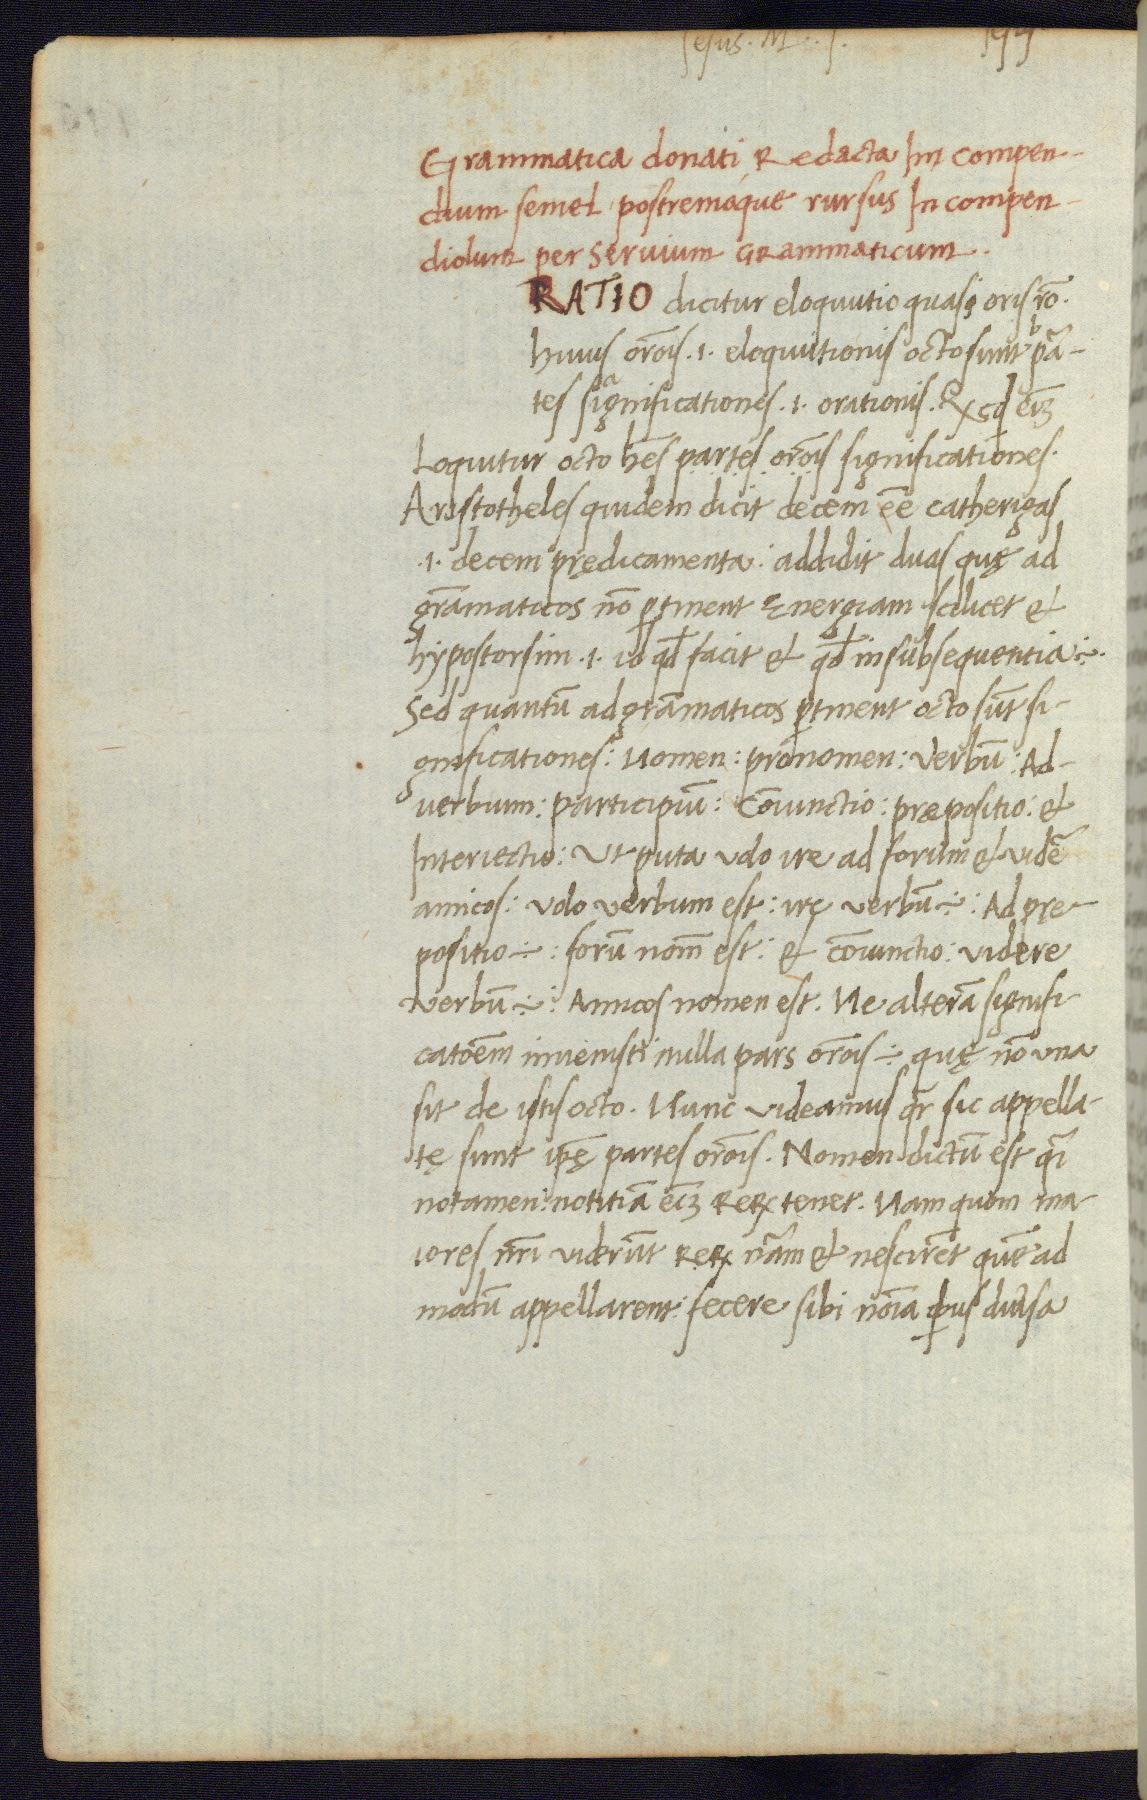 Jesus. M
Grammatica donati Redacta In compen-
dium semel postremaque rursus In compen-
diolum per Seruium GRammaticum.
RATIO dicitur eloquutio quasi oris rō.
huius orōis .i. eloquutionis octo sunt pā-
tes significationes .i. orationis. 
Loquitur octo hēs partes orōis significationes.
Aristotheles quidem dicit decem eē catherigas
.i. decem prędicamenta: addidit duas quę ad
grāmaticos nō ꝑtinent Energiam scilicet et
hypostorsim .i. id qđ facit et qđ in subsequentia ÷.
Sed quantū ad grāmaticos ꝑtinent octo sūt si-
gnificationes: Nomen: pronomen: Verbū: Ad-
uerbum: participiū: Cōiunctio: præpositio: et
Interiectio: Ut puta uolo ire ad forum et uidē
amicos: uolo uerbum est: irę uerbū ÷: Ad prę-
positio ÷: forū nom̄ est: et cōiunctio: uidere
uerbū ÷: Amicos nomen est. Ne alterā signifi-
catōem inuenisti nulla pars orōis ÷ quę nō una
sit de istis octo. Nunc uideamus qr̄ sic appella-
tę sunt ip̄ę partes orōis. Nomen dictū est qͥ
notamen: notitiā eīꝫ Reꝝ tenet. Nam quom ma-
iores nr̄i uiderūt Reꝝ nām et nescirēt quē ad
modū appellarent: fecere sibi noīa ꝗbus diu̅sa